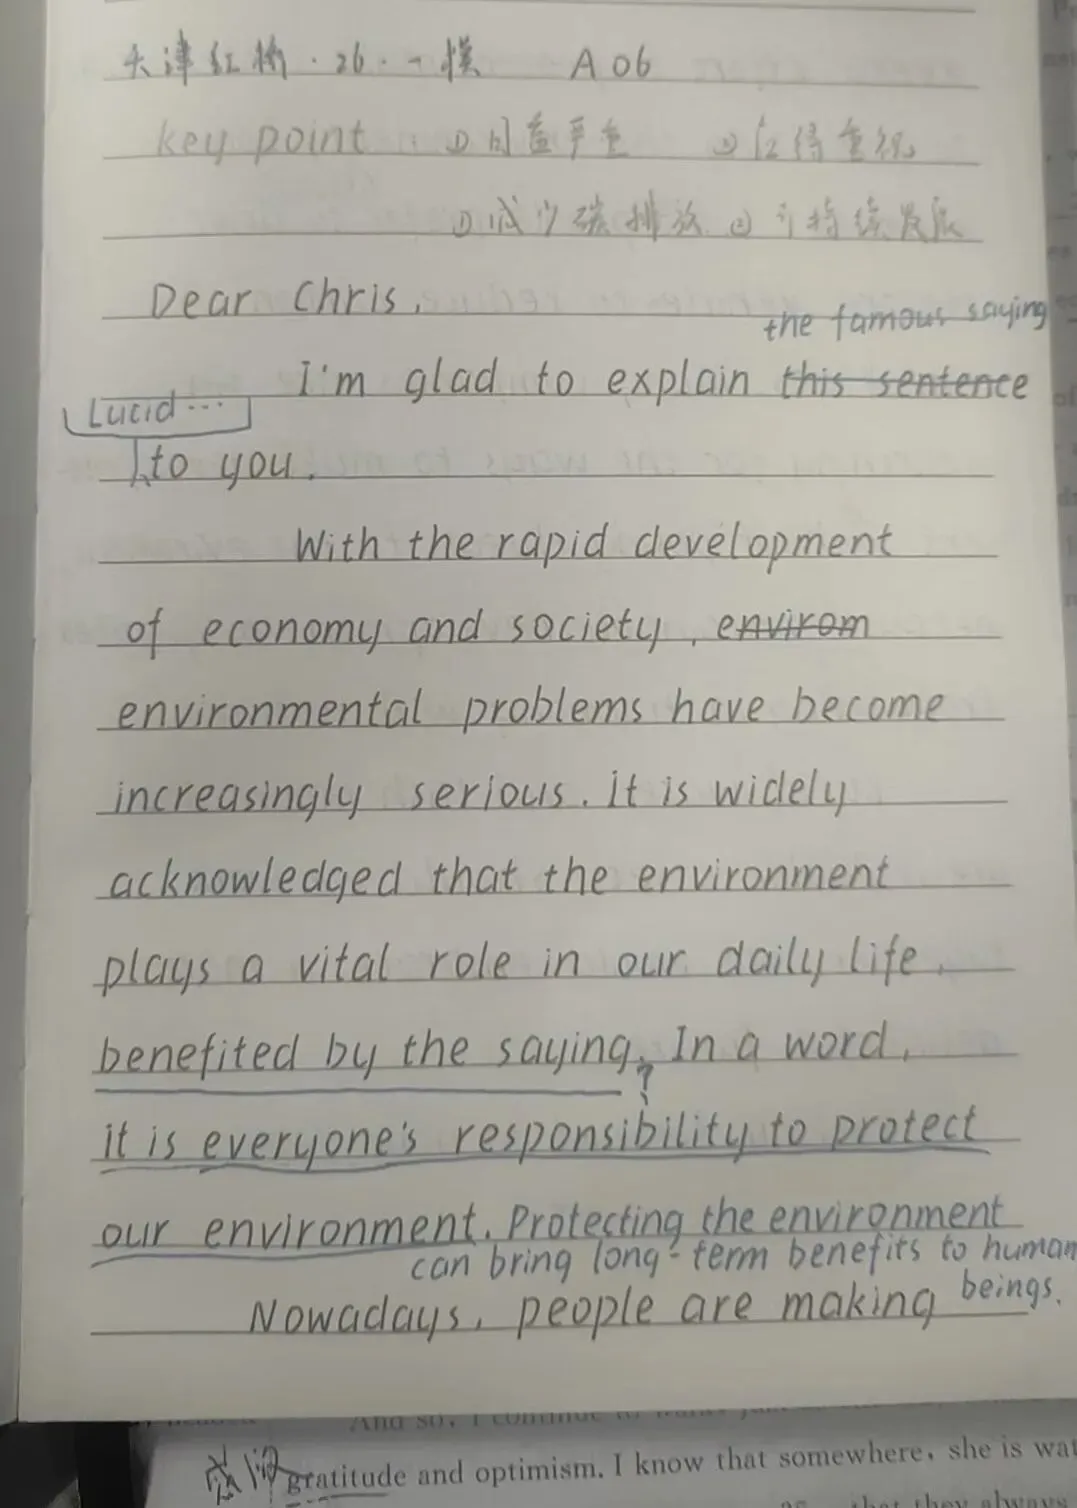 天津红桥·26·一模 A06
key point: ①日益严重 ②值得重视
①减少碳排放 ②可持续发展
Dear Chris,
the famous saying
I'm glad to explain this sentence
Lucid...
to you.
With the rapid development
of economy and society, envirom
environmental problems have become
increasingly serious. it is widely
acknowledged that the environment
plays a vital role in our daily life.
benefited by the saying. In a word,
?
it is everyone's responsibility to protect
our environment. Protecting the environment
can bring long-term benefits to human
beings.
Nowadays, people are making
gratitude and optimism. I know that somewhere, she is